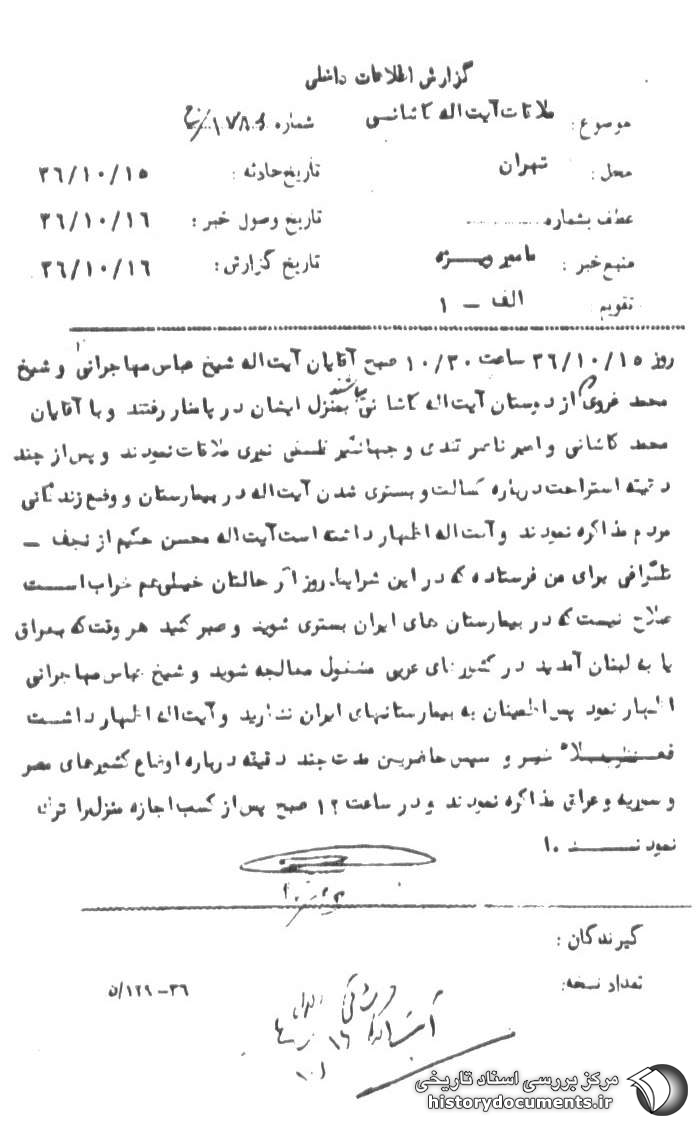 گزارش اطلاعات داخلی
موضوع: ملاقات آیت‌اله کاشانی
شماره
محل: تهران
تاریخ حادثه: ۳۶/۱۰/۱۵
عطف بشماره
تاریخ وصول خبر: ۳۶/۱۰/۱۶
منبع خبر: مامور ویژه
تاریخ گزارش: ۳۶/۱۰/۱۶
تقویم الف - ۱
روز ۳۶/۱۰/۱۵ ساعت ۱۰/۳۰ صبح آقایان آیت‌اله شیخ عباس مهاجرانی و شیخ
محمد غروی از دوستان آیت‌اله کاشانی میباشند بمنزل ایشان در پامنار رفتند و با آقایان
محمد کاشانی و امیر ناصر قندی و جهانگیر فلسفی نیری ملاقات نمودند و پس از چند
دقیقه استراحت درباره کسالت و بستری شدن آیت‌اله در بیمارستان و وضع زندگانی
مردم مذاکره نمودند و آیت‌اله اظهار داشته است آیت‌اله محسن حکیم از نجف -
تلگرافی برای من فرستاده که در این شرایط روز اگر حالتان خیلی هم خراب است
صلاح نیست که در بیمارستان های ایران بستری شوید و صبر کنید هر وقت که بعراق
یا به لبنان آمدید در کشورهای عربی مشغول معالجه شوید و شیخ عباس مهاجرانی
اظهار نمود پس اطمینان به بیمارستانهای ایران ندارید و آیت‌اله اظهار داشت
نخیر و سپس حاضرین مدت چند دقیقه درباره اوضاع کشورهای مصر
و سوریه و عراق مذاکره نمودند و در ساعت ۱۲ صبح پس از کسب اجازه منزل را ترک
نمودند ۱۰
گیرندگان:
تعداد نسخه:
۳۶-۱۲۹/ن
مرکز بررسی اسناد تاریخی
historydocuments.ir